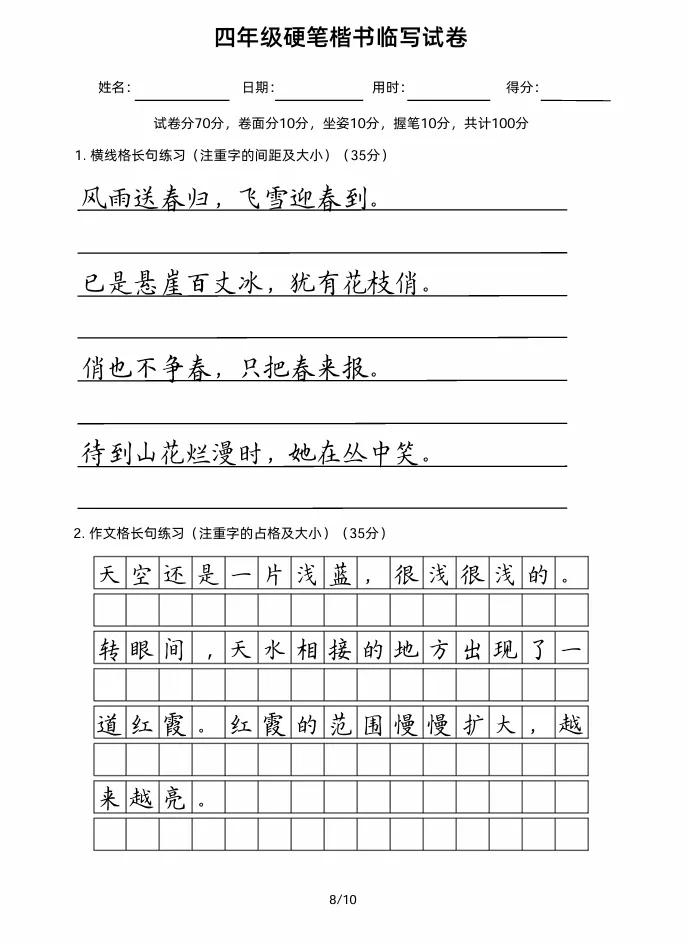 四年级硬笔楷书临写试卷
姓名： 日期： 用时： 得分：
试卷分70分，卷面分10分，坐姿10分，握笔10分，共计100分
1. 横线格长句练习（注重字的间距及大小）（35分）
风雨送春归，飞雪迎春到。
已是悬崖百丈冰，犹有花枝俏。
俏也不争春，只把春来报。
待到山花烂漫时，她在丛中笑。
2. 作文格长句练习（注重字的占格及大小）（35分）
天空还是一片浅蓝，很浅很浅的。
转眼间，天水相接的地方出现了一
道红霞。红霞的范围慢慢扩大，越
来越亮。
8/10